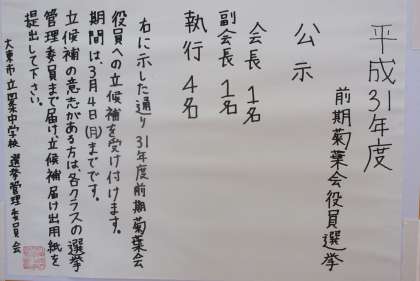 平成31年度
前期菊葉会役員選挙
公示
会長 1名
副会長 1名
執行 4名
右に示した通り31年度前期菊葉会
役員への立候補を受け付けます。
期間は、3月4日(月)までです。
立候補の意志がある方は、各クラスの選挙
管理委員まで届け、立候補届け出用紙を
提出して下さい。
大東市立四条中学校 選挙管理委員会